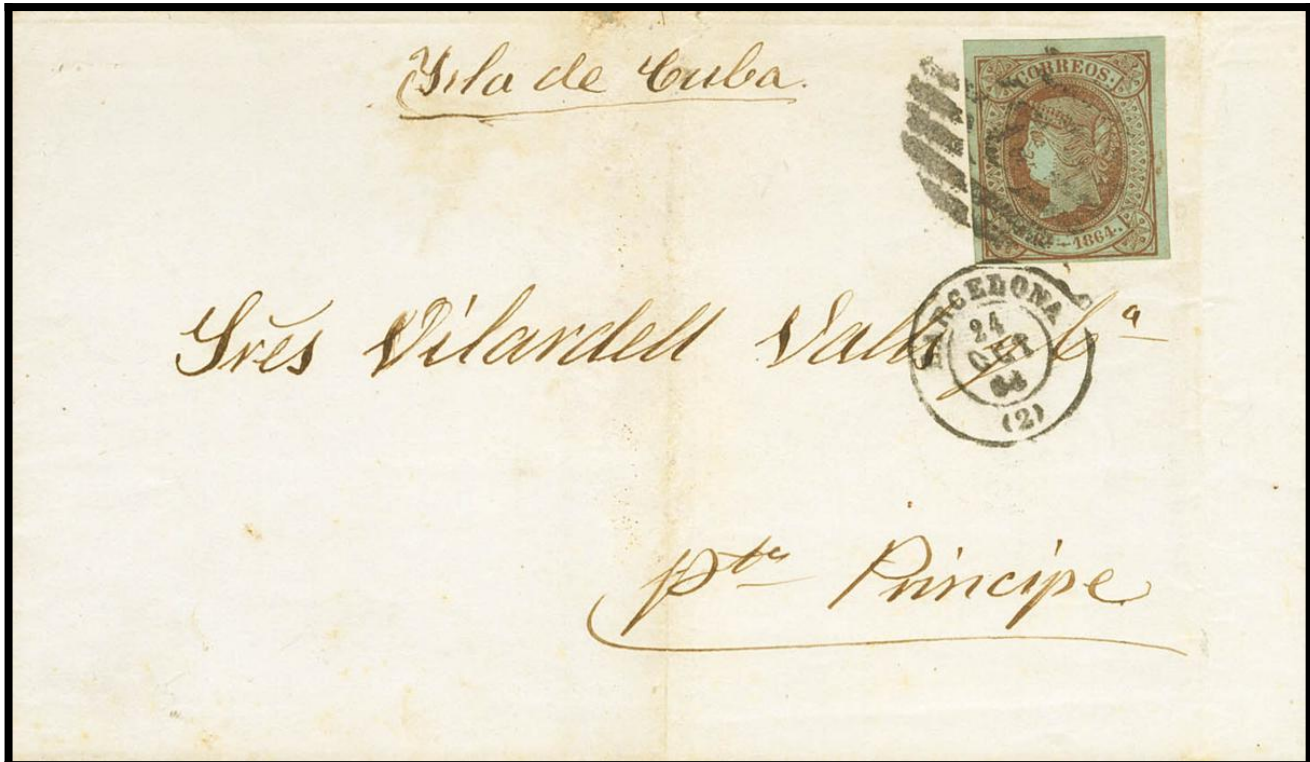 Isla de Cuba.
CORREOS.
1864.
BARCELONA
24
OCT
64
(2)
Srēs Vilardell Valls y Cª
Pto Principe